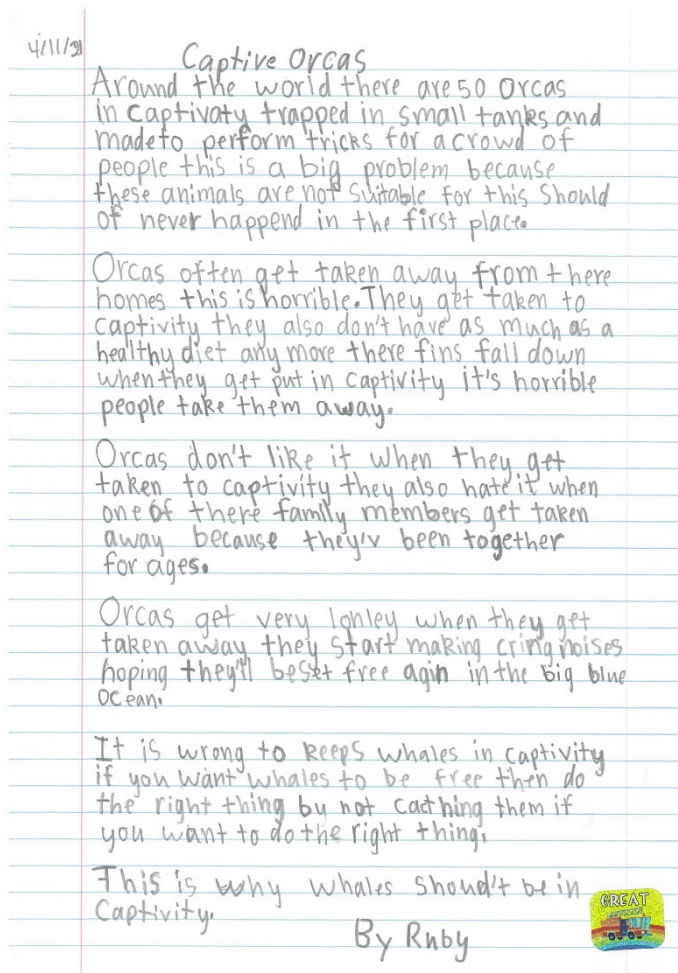 4/11/21
Captive Orcas
Around the world there are 50 Orcas
in captivaty trapped in small tanks and
madeto perform tricks for a crowd of
people this is a big problem because
these animals are not suitable for this Should
of never happend in the first place.
Orcas often get taken away from there
homes this is horrible. They get taken to
captivity they also don't have as much as a
healthy diet any more there fins fall down
when they get put in captivity it's horrible
people take them away.
Orcas don't like it when they get
taken to captivity they also hate it when
one of there family members get taken
away because they'v been together
for ages.
Orcas get very lonley when they get
taken away they start making cring noises
hoping they'll be set free agin in the big blue
ocean.
It is wrong to keeps whales in captivity
if you want whales to be free then do
the right thing by not cacthing them if
you want to do the right thing.
This is why whales shoud't be in
Captivity.
By Ruby
GREAT